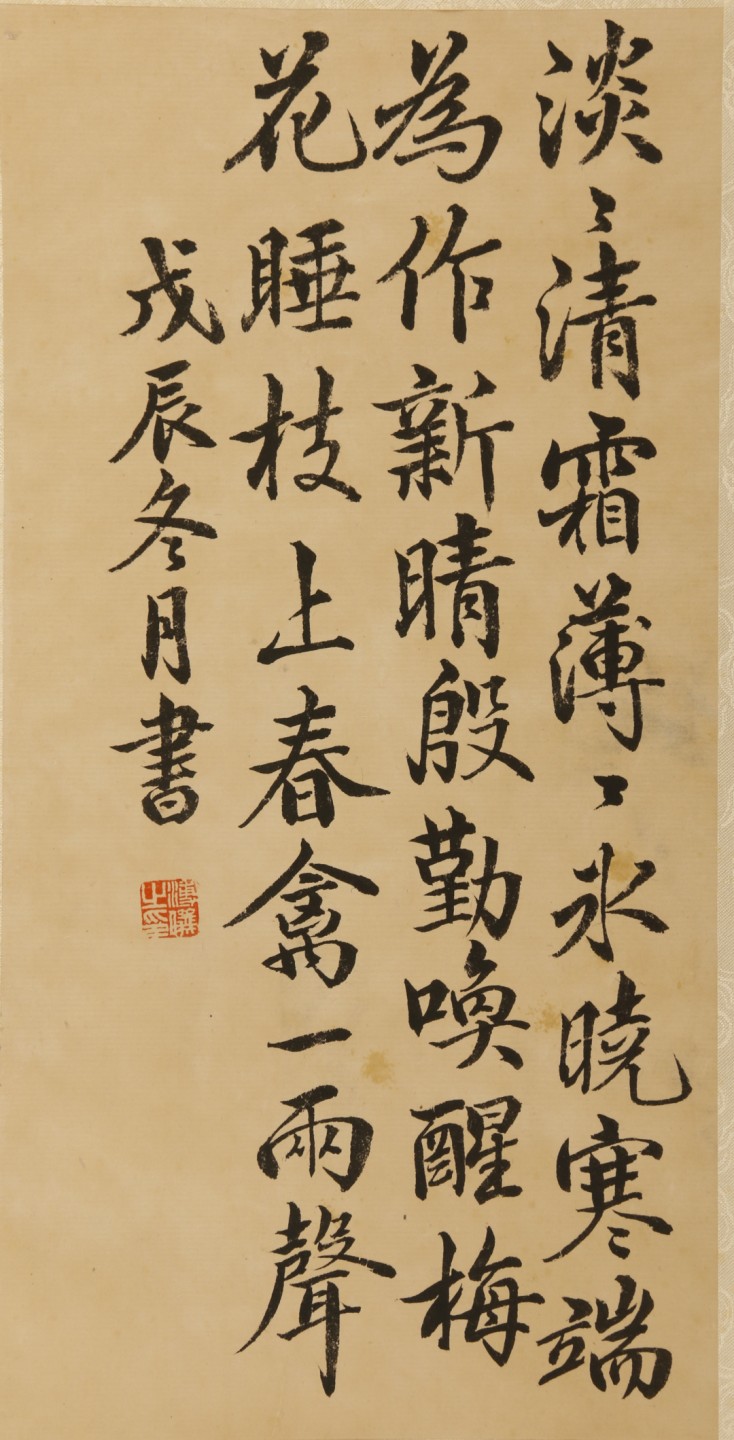 淡〻清霜薄〻冰曉寒端
為作新晴殷勤喚醒梅
花睡枝上春禽一兩聲
戊辰冬月書